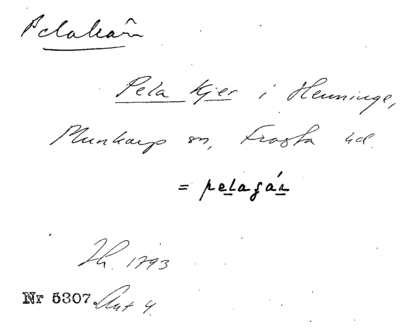 Pelakär
Pela Kjer i Henninge,
Munkarp sn, Frosta hd.
= pelagár
Lh. 1793
Nr 5307 Ant 4.